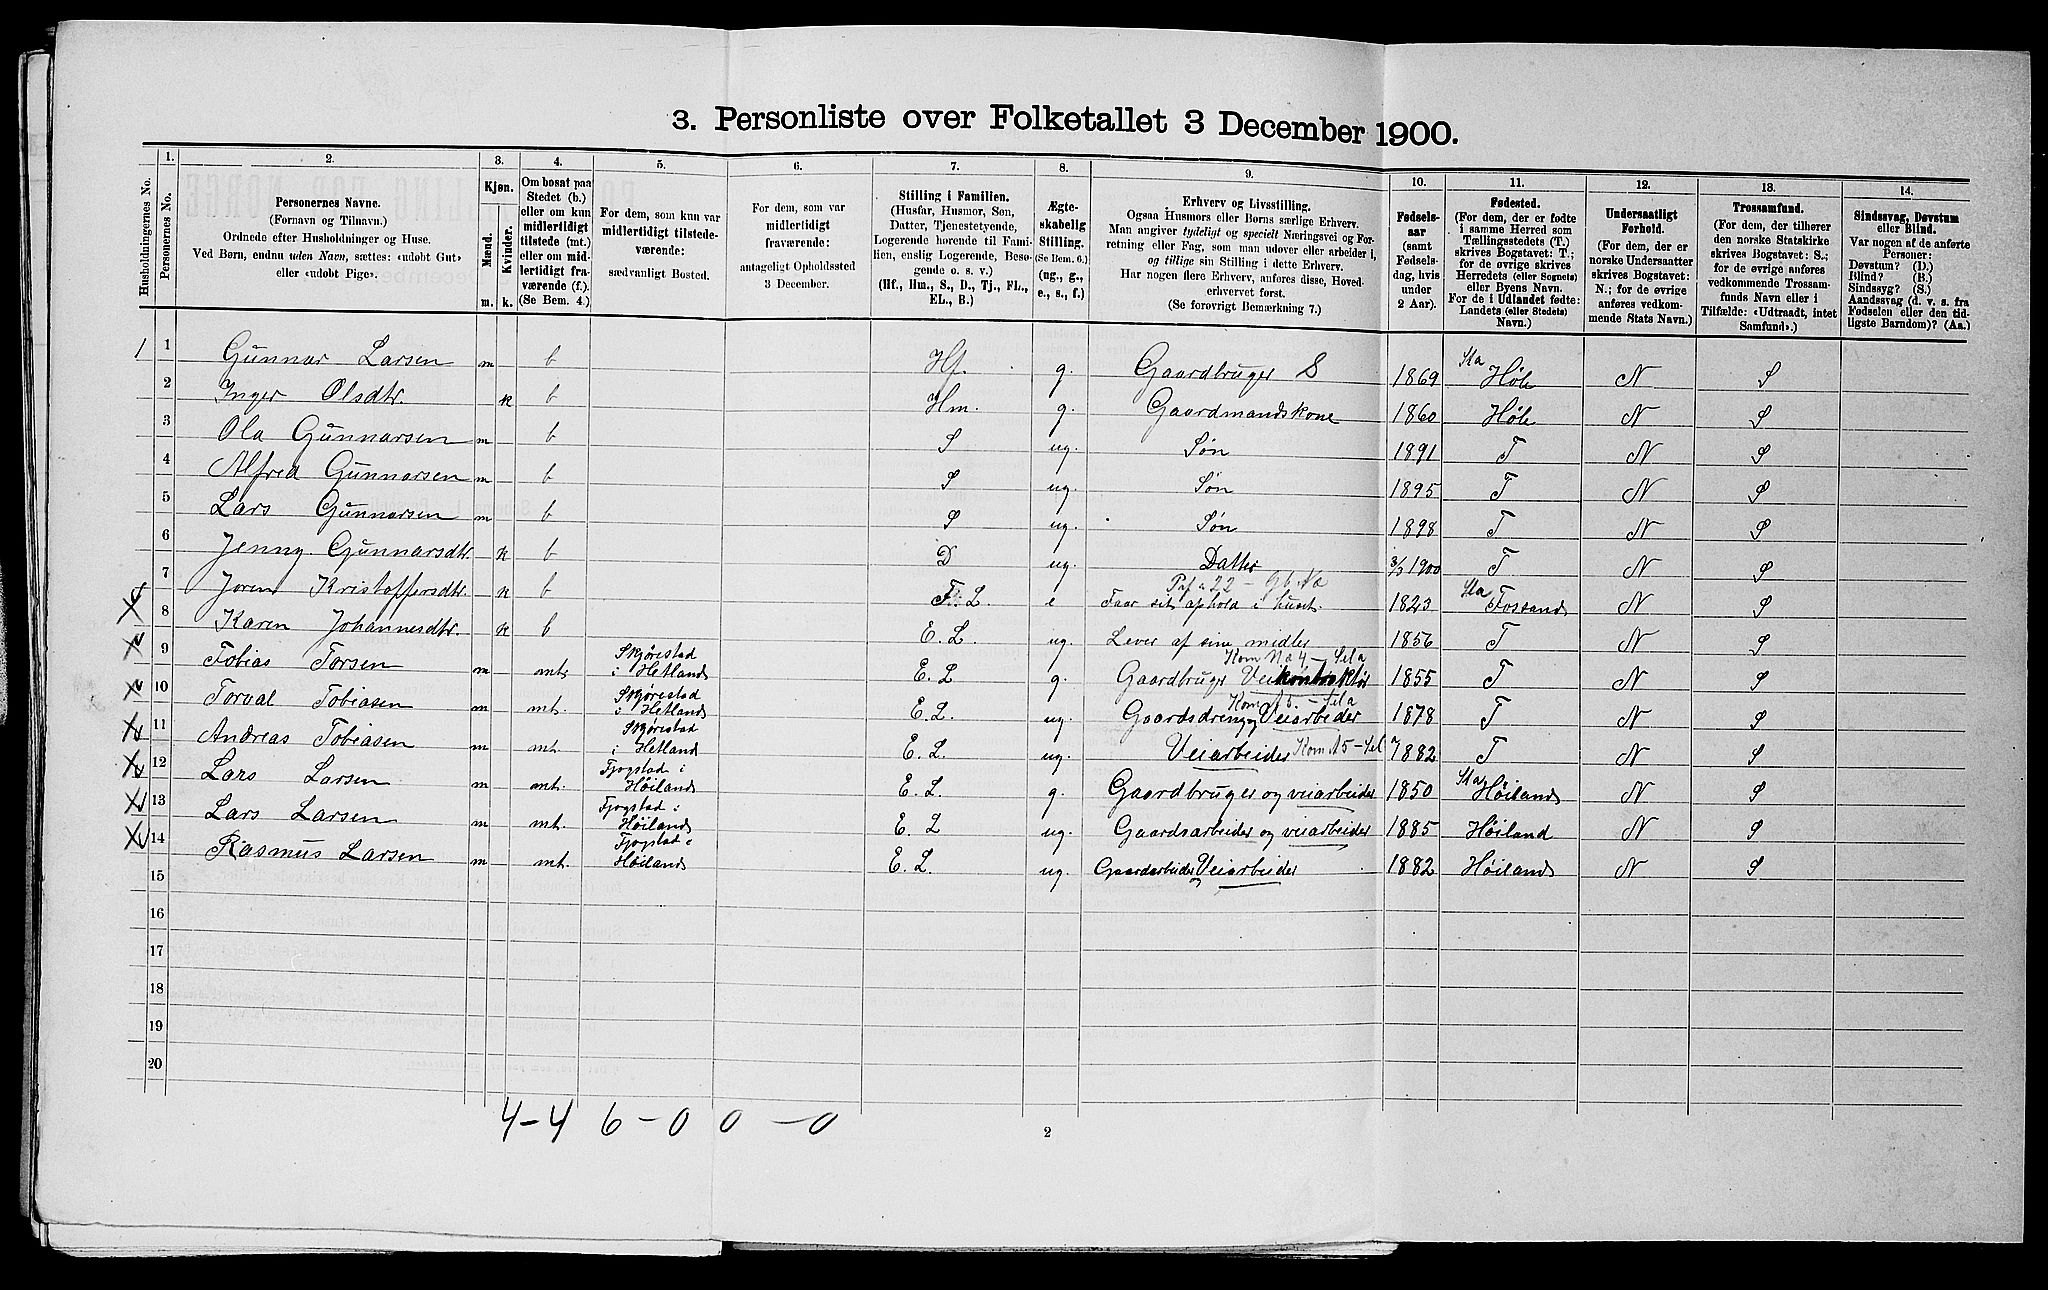 3. Personliste over Folketallet 3 December 1900.
Husholdningernes No.
1. Personernes No.
2. Personernes Navne.
(Fornavn og Tilnavn.)
Ordnede efter Husholdninger og Huse.
Ved Børn, endnu uden Navn, sættes: «udøbt Gut»
eller «udøbt Pige».
3. Kjøn.
Mænd. Kvinder.
m. k.
4.
Om bosat paa
Stedet (b.)
eller om kun
midlertidigt
tilstede (mt.)
eller om mid-
lertidigt fra-
værende (f.).
(Se Bem. 4.)
5.
For dem, som kun var
midlertidigt tilstede-
værende:
sædvanligt Bosted.
6.
For dem, som var
midlertidigt
fraværende:
antageligt Opholdssted
3 December.
7.
Stilling i Familien.
(Husfar, Husmor, Søn,
Datter, Tjenestetyende,
Logerende hørende til Fami-
lien, enslig Logerende, Besø-
gende o. s. v.)
(Hf., Hm., S., D., Tj., FL.,
EL., B.)
8.
Ægte-
skabelig
Stilling.
(Se Bem. 6.)
(ug., g.,
e., s., f.)
9.
Erhverv og Livsstilling.
Ogsaa Husmors eller Børns særlige Erhverv.
Man angiver tydeligt og specielt Næringsvei og For-
retning eller Fag, som man udøver eller arbeider i,
og tillige sin Stilling i dette Erhverv.
Har nogen flere Erhverv, anføres disse, Hoved-
erhvervet først.
(Se forøvrigt Bemærkning 7.)
10.
Fødsels-
aar
(samt
Fødsels-
dag, hvis
under
2 Aar).
11.
Fødested.
(For dem, der er fødte
i samme Herred som
Tællingsstedets (T.)
skrives Bogstavet: T.;
for de øvrige skrives
Herredets (eller Sognets)
eller Byens Navn.
For de i Udlandet fødte:
Landets (eller Stedets)
Navn.)
12.
Undersaatligt
Forhold.
(For dem, der er
norske Undersaatter
skrives Bogstavet:
N.; for de øvrige
anføres vedkom-
mende Stats Navn.)
13.
Trossamfund.
(For dem, der tilhører
den norske Statskirke
skrives Bogstavet: S.;
for de øvrige anføres
vedkommende Trossam-
funds Navn eller i
Tilfælde: «Udtraadt, intet
Samfund».)
14.
Sindssvag, Døvstum
eller Blind.
Var nogen af de anførte
Personer:
Døvstum? (D.)
Blind? (B.)
Sindssyg? (S.)
Aandssvag (d. v. s. fra
Fødselen eller den tid-
ligste Barndom)? (Aa.)
1 1 Gunnar Larsen m b Hf. g. Gaardbruger S 1869 Høle N S
2 Inger Olsdtr. k b Hm. g. Gaardmandskone 1860 Høle N S
3 Ola Gunnarsen m b S ug. Søn 1891 T N S
4 Alfred Gunnarsen m b S ug. Søn 1895 T N S
5 Lars Gunnarsen m b S ug. Søn 1898 T N S
6 Jenny Gunnarsdtr. k b D ug. Datter 3/3 1900 T N S
7 Joren Kristoffersdtr. k b F. L. e Faar sit ophold i huset. 1823 Fossand N S
8 Karen Johannesdtr. k b E. L. ug. Lever af sine midler 1856 T N S
9 Tobias Torsen m mt. Skjørestad i Hetland E. L g. Gaardbruger Veikontraktør 1855 T N S
10 Torval Tobiasen m mt. Skjørestad i Hetland E. L. ug. Gaardsdreng og Veiarbeider 1878 T N S
11 Andreas Tobiasen m mt. Skjørestad i Hetland E. L. ug. Veiarbeider 1882 T N S
12 Lars Larsen m mt. Fjogstad i Høiland E. L. g. Gaardbruger og veiarbeider 1850 Høiland N S
13 Lars Larsen m mt. Fjogstad i Høiland E. L ug. Gaardsarbeider og veiarbeider 1885 Høiland N S
14 Rasmus Larsen m mt. Fjogstad i Høiland E. L. ug. Gaardarbeider Veiarbeider 1882 Høiland N S
15
16
17
18
19
20
4-4 6-0 0-0
2